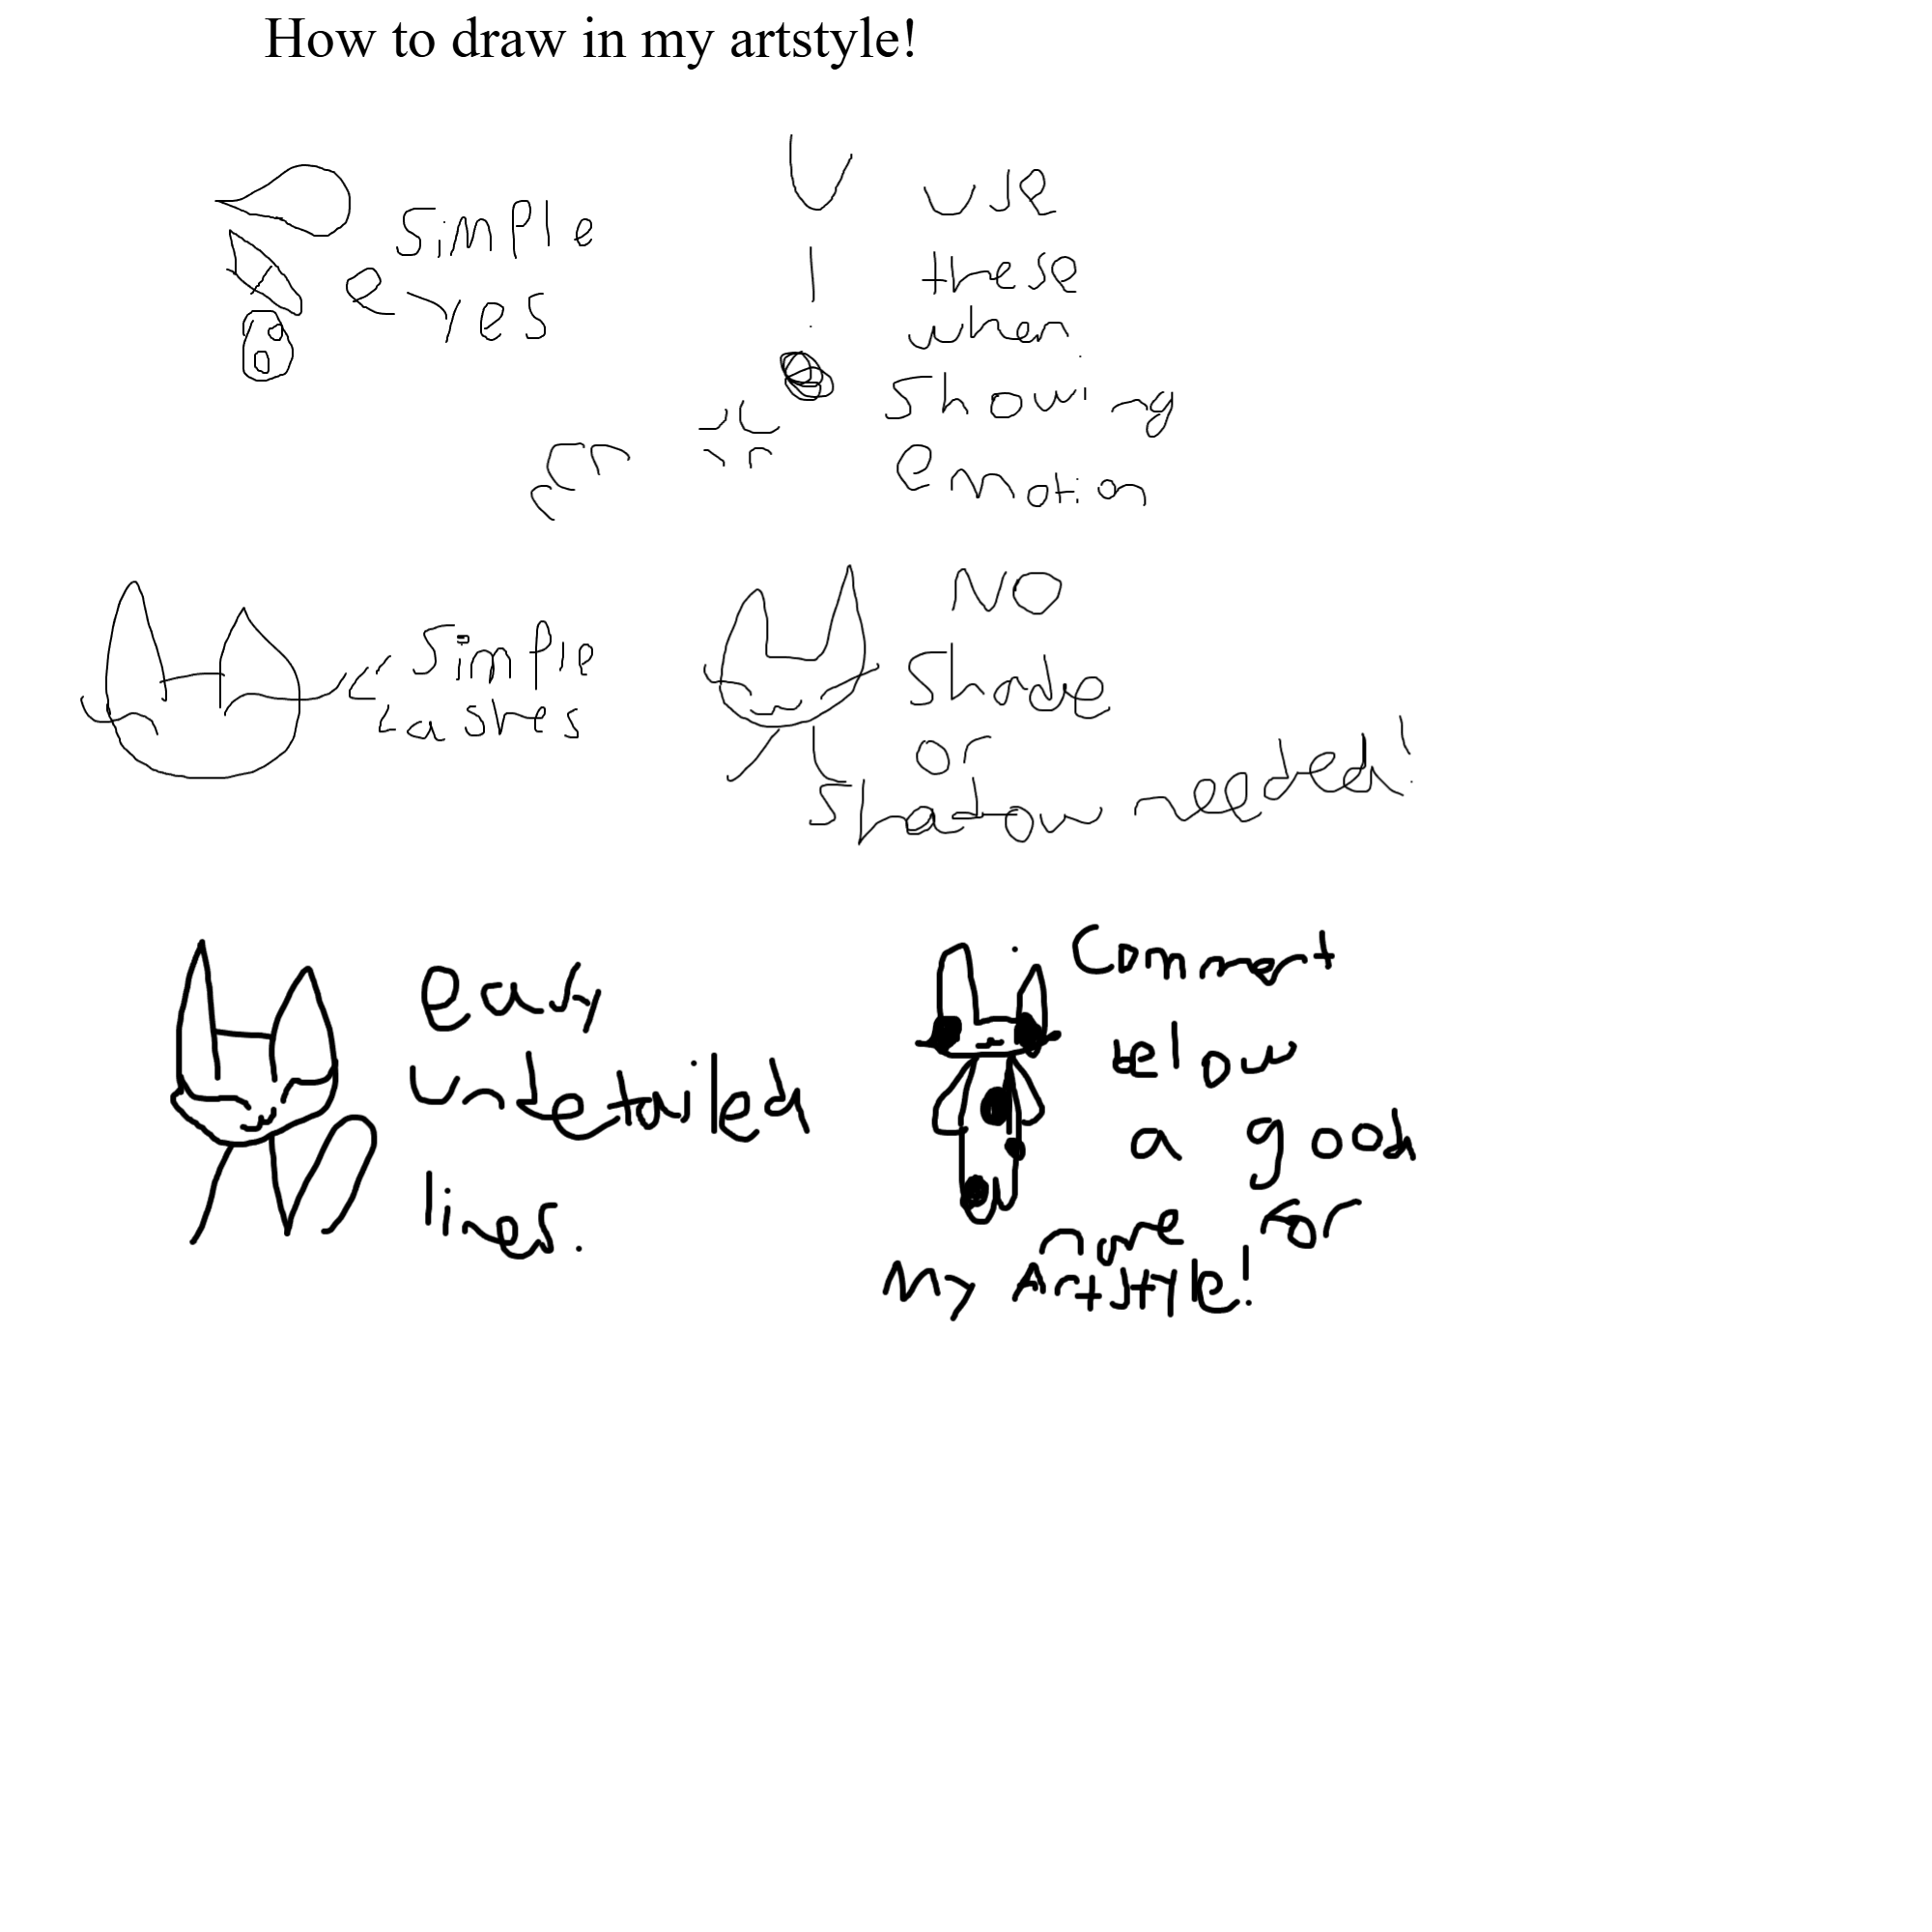 How to draw in my artstyle!
Simple
eyes
use
these
when
showing
emotion
Simple
Lashes
NO
Shade
or
Shadow needed!
easy
undetailed
lines.
Comment
below
a good
name for
My Artstyle!